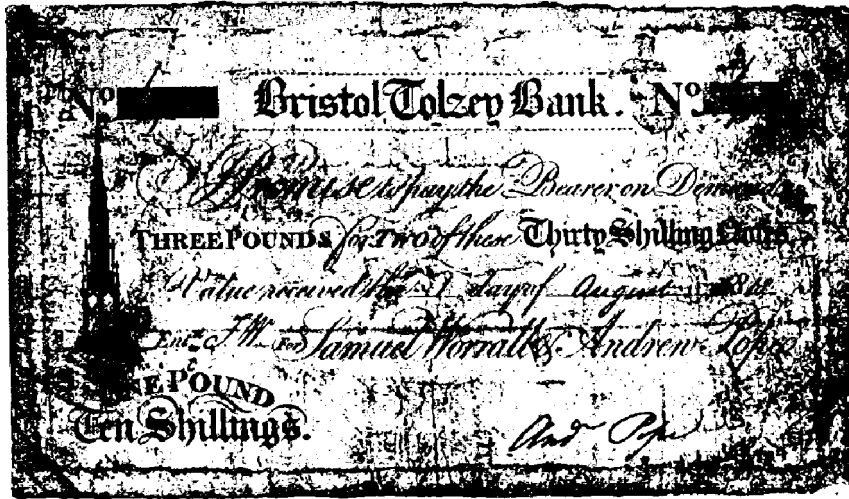 No Bristol Tolzey Bank. No
I Promise to pay the Bearer on Demand
THREE POUNDS for TWO of these Thirty Shilling Notes
Value received the day of August 18
Entd. J W For Samuel Worrall & Andrew Pope
ONE POUND
Ten Shillings.
And Pope